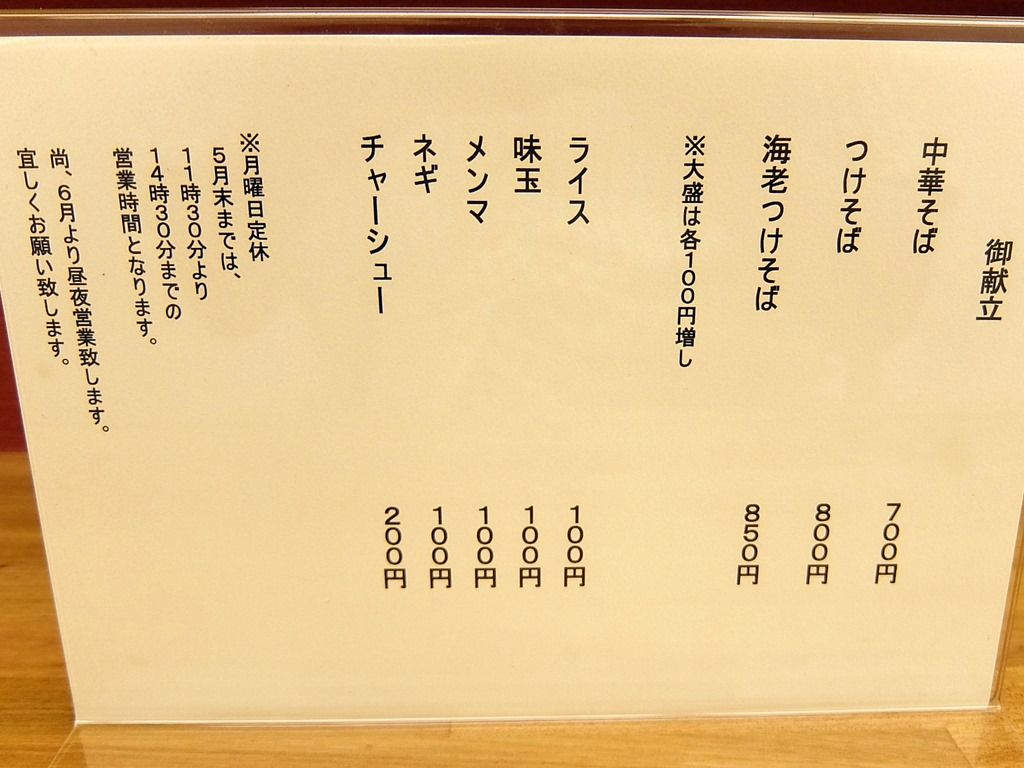 御献立
中華そば 700円
つけそば 800円
海老つけそば 850円
※大盛は各100円増し
ライス 100円
味玉 100円
メンマ 100円
ネギ 100円
チャーシュー 200円
※月曜日定休
5月末までは、
11時30分より
14時30分までの
営業時間となります。
尚、6月より昼夜営業致します。
宜しくお願い致します。